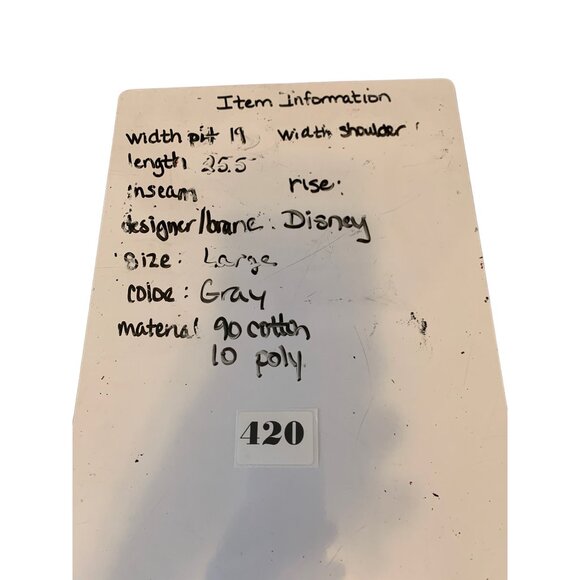 Item Information
width pit 19 width shoulder
length 25.5
inseam rise:
designer/brand: Disney
size: Large
color: Gray
material 90 cotton
10 poly
420